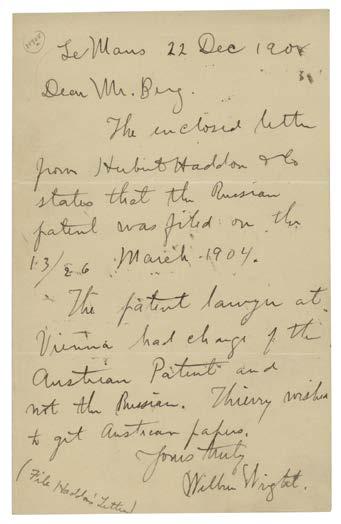 Le Mans 22 Dec 1908
Dear Mr. Berg.
The enclosed letter
from Herbert Haddon & Co
states that the Russian
patent was filed on the
13/26 March 1904.
The patent lawyer at
Vienna had charge of the
Austrian Patent and
not the Russian. Thierry wishes
to get Austrian papers.
Yours truly
Wilbur Wright.
(File Haddon's Letter)